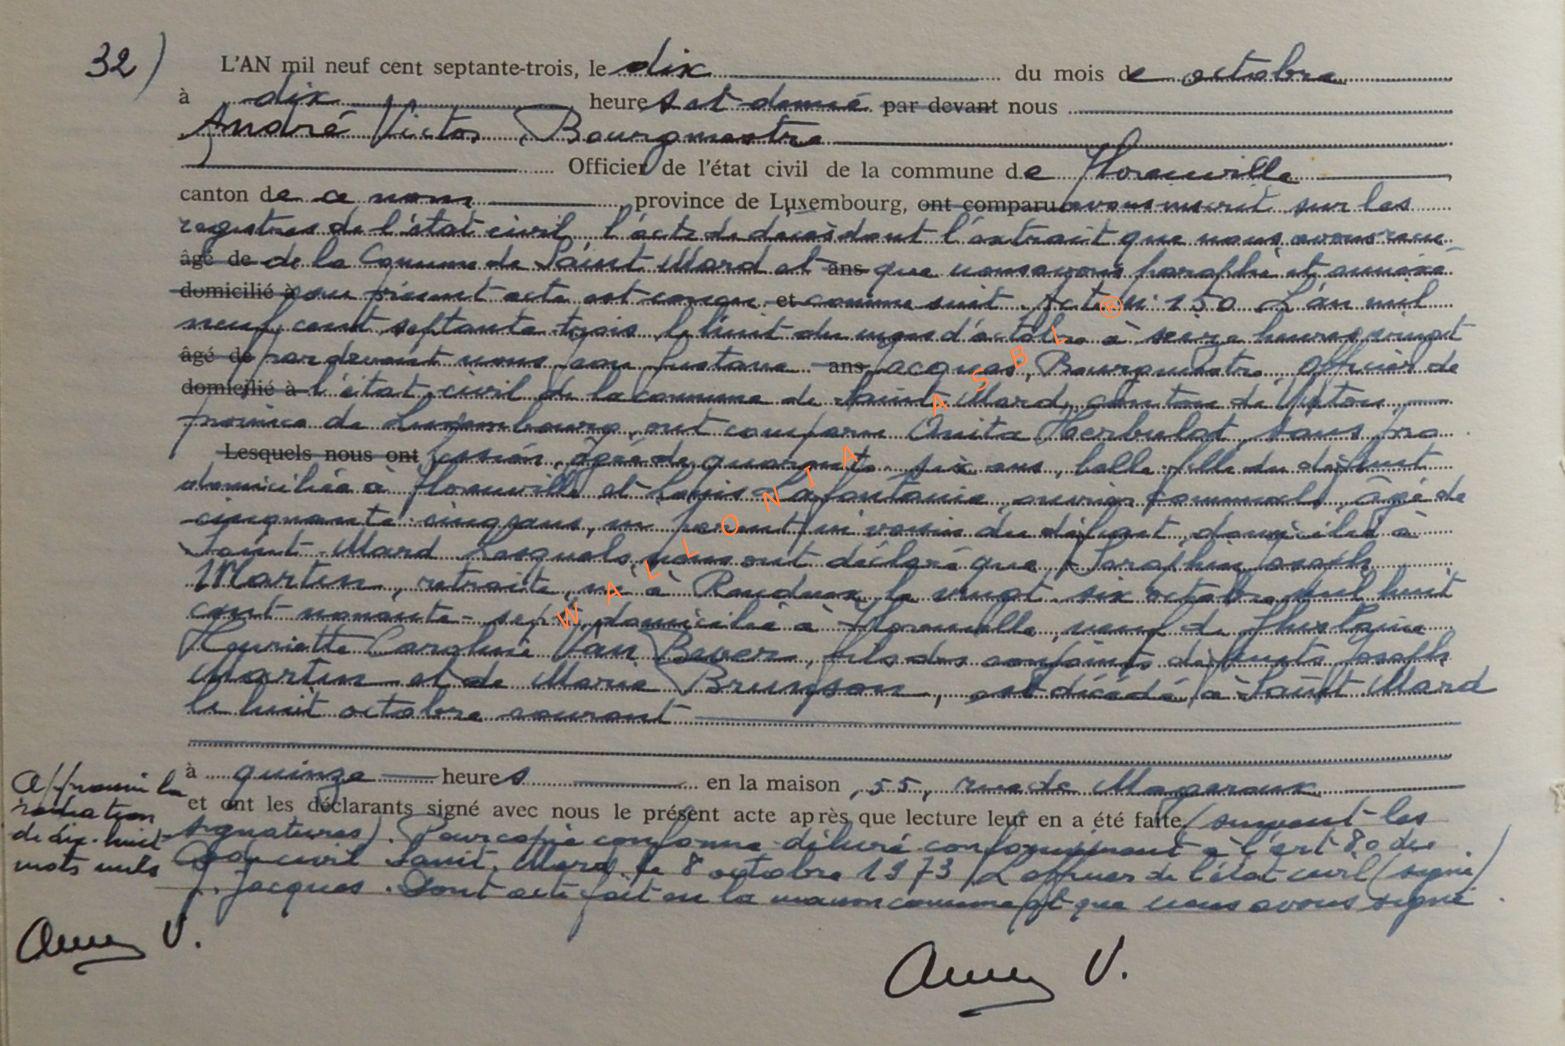 32) L'AN mil neuf cent septante-trois, le dix du mois de octobre
à dix heures et demie par devant nous
André Victor, Bourgmestre
Officier de l'état civil de la commune de Florenville
canton de ce nom province de Luxembourg, ont comparu avons inscrit sur les
registres de l'état civil, l'acte de décès dont l'extrait que nous avons reçu
âgé de de la Commune de Saint Mard et ans que nous avons paraphé et annexé
domicilié à au présent acte est conçu et comme suit. Acte n° 150 L'an mil
neuf cent septante-trois, le huit du mois d'octobre à seize heures vingt
âgé de pardevant nous, Jean Gustave ans Jacques, Bourgmestre, officier de
domicilié à l'état civil de la commune de Saint Mard, canton de Virton,
province de Luxembourg, ont comparu Anita Herbulot, sans pro
Lesquels nous ont fession, âgée de quarante-six ans, belle-fille du défunt
domiciliée à Florenville et Louis Lafontaine, ouvrier communal, âgé de
cinquante-cinq ans, ni parent ni voisin du défunt, domicilié à
Saint-Mard. Lesquels nous ont déclaré que Séraphin Joseph
Martin, retraité, né à Rendeux, le vingt-six octobre mil huit
cent nonante-sept, domicilié à Florenville, veuf de Ghislaine
Henriette Caroline Van Bever, fils des conjoints défunts Joseph
Martin et de Marie Brungson, est décédé à Saint Mard
le huit octobre courant
à quinze heures en la maison, 55, rue de Mageroux
et ont les déclarants signé avec nous le présent acte après que lecture leur en a été faite (suivent les
signatures). Pour copie conforme délivré conformément à l'art 80 du
Code civil Saint-Mard, le 8 octobre 1973 L'officier de l'état civil (signé)
J. Jacques. Dont acte fait en la maison commune et que nous avons signé.
Approuvé la
radiation
de dix-huit
mots nuls
V.
V.
WALLONIA ASBL ®